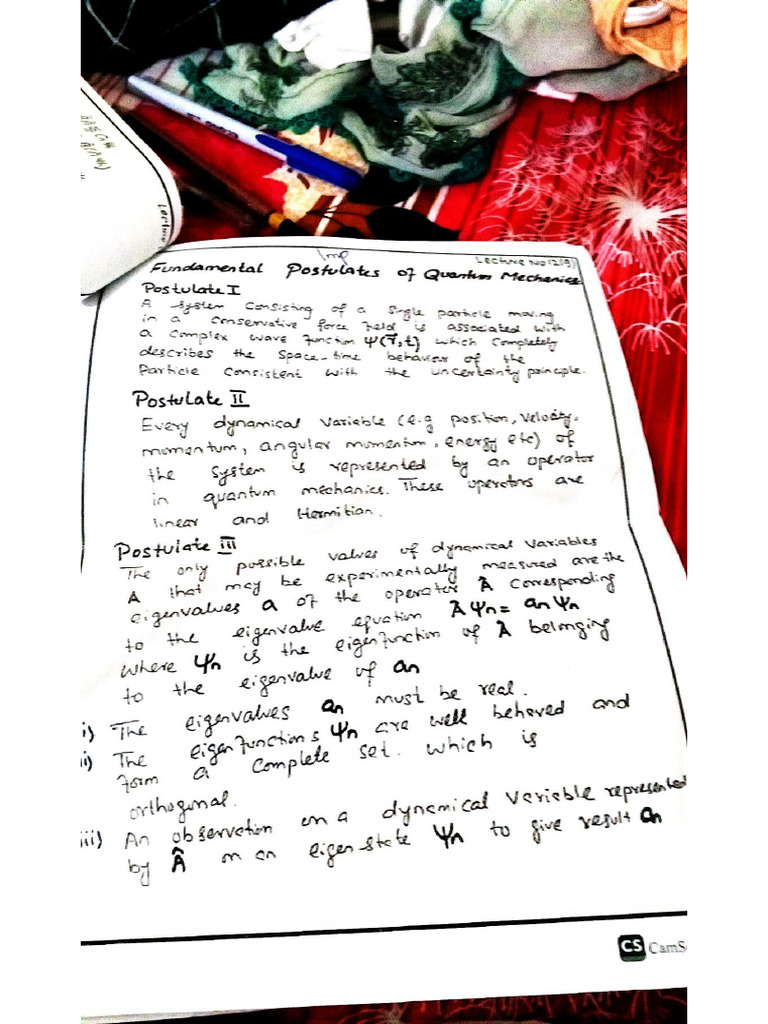 Imp
Lecture No 12(9)
Fundamental Postulates of Quantum Mechanics
Postulate I
A System Consisting of a Single particle moving
in a conservative force field is associated with
a complex wave function Ψ(r⃗,t) which completely
describes the space-time behaviour of the
Particle consistent with the uncertainty principle.
Postulate II
Every dynamical Variable (e.g position, velocity,
momentum, angular momentum, energy etc) of
the System is represented by an operator
in quantum mechanics. These operators are
linear and Hermitian.
Postulate III
The only possible values of dynamical variables
A that may be experimentally measured are the
eigenvalues a of the operator Â corresponding
to the eigenvalue equation ÂΨn = an Ψn
where Ψn is the eigenfunction of Â belonging
to the eigenvalue of an
i) The eigenvalues an must be real.
ii) The eigenfunctions Ψn are well behaved and
form a complete set. which is
orthogonal.
iii) An observation on a dynamical variable represented
by Â on an eigen state Ψn to give result an
CS CamS